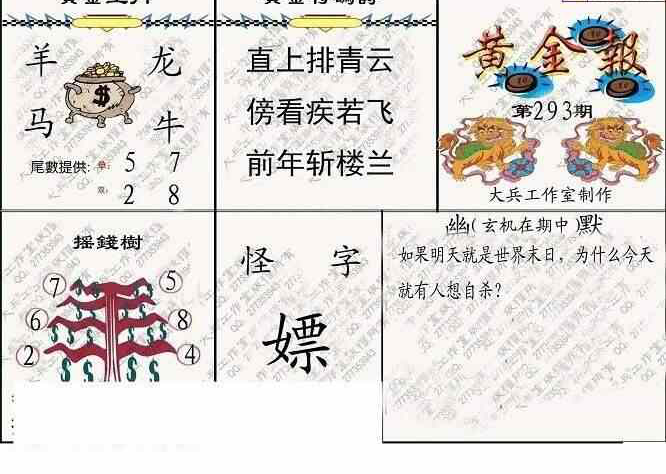 羊 龙
马 牛
尾數提供: 单: 5 7
双: 2 8
直上排青云
傍看疾若飞
前年斩楼兰
黄金報
第293期
大兵工作室制作
摇錢樹
7 5
6 8
2 4
怪 字
嫖
幽(玄机在期中)默
如果明天就是世界末日，为什么今天
就有人想自杀？